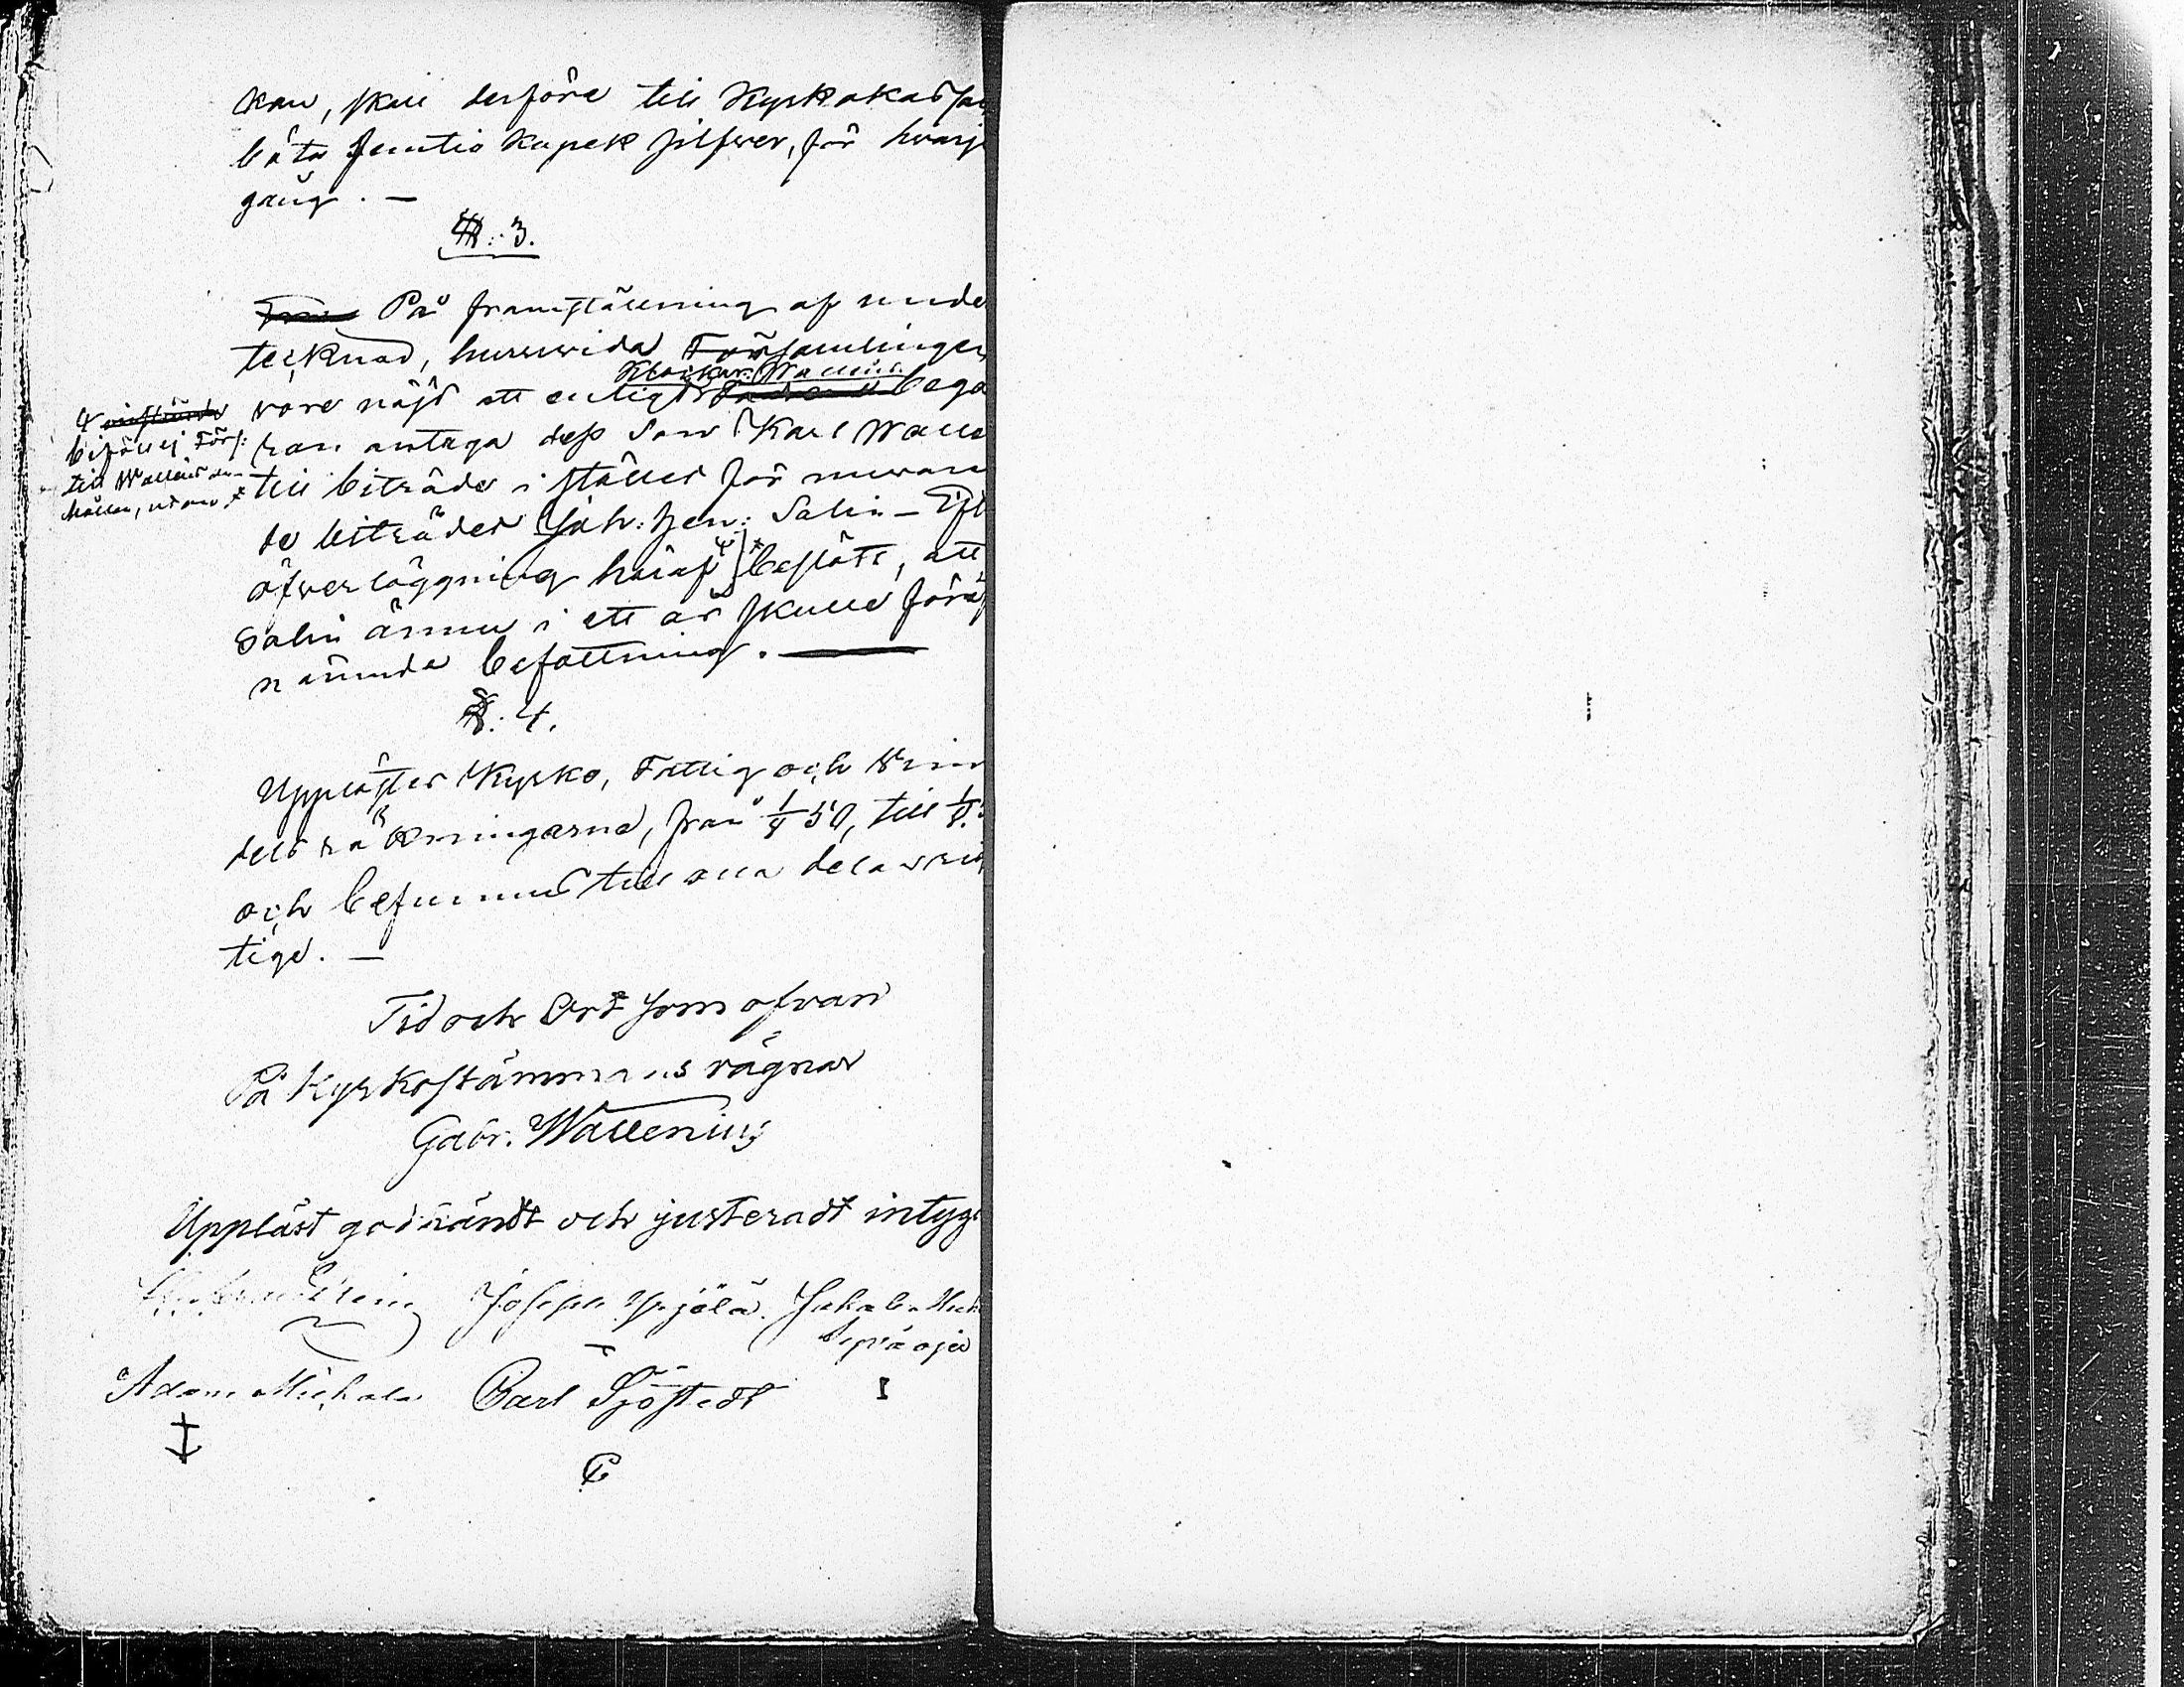 kan, skall derföre till Kyrkokassan
böta femtio kopek silfver, för hvarje
gång. —
§: 3.
På framställning af under
tecknad, huruvida Församlingen
Klockar. Wallins
vore nöjd att enligt begä
ran antaga dess Son Karl Walle
till biträde i stället för nuvaran
de biträdet Joh: Hen: Salin — Eft
öfverläggning häraf beslöts, att
Salin ännu i ett år skulle före
nämnda befattning. —
biföll ej Förs:
till Wallins an-
hållan, utan
§: 4.
Upplästes Kyrko, Fattig och Qvin
dels räkningarna, från 1/4 50, till 1/4
och befunnos till alla delar rik
tige. —
Tid och Ort som ofvan
På Kyrkostämmans vägnar
Gabr. Wallenius
Uppläst godkändt och justeradt intyga
Joseph Yrjölä. Jakob Mich
Sepräoja
Adam Michala Carl Sjöstedt